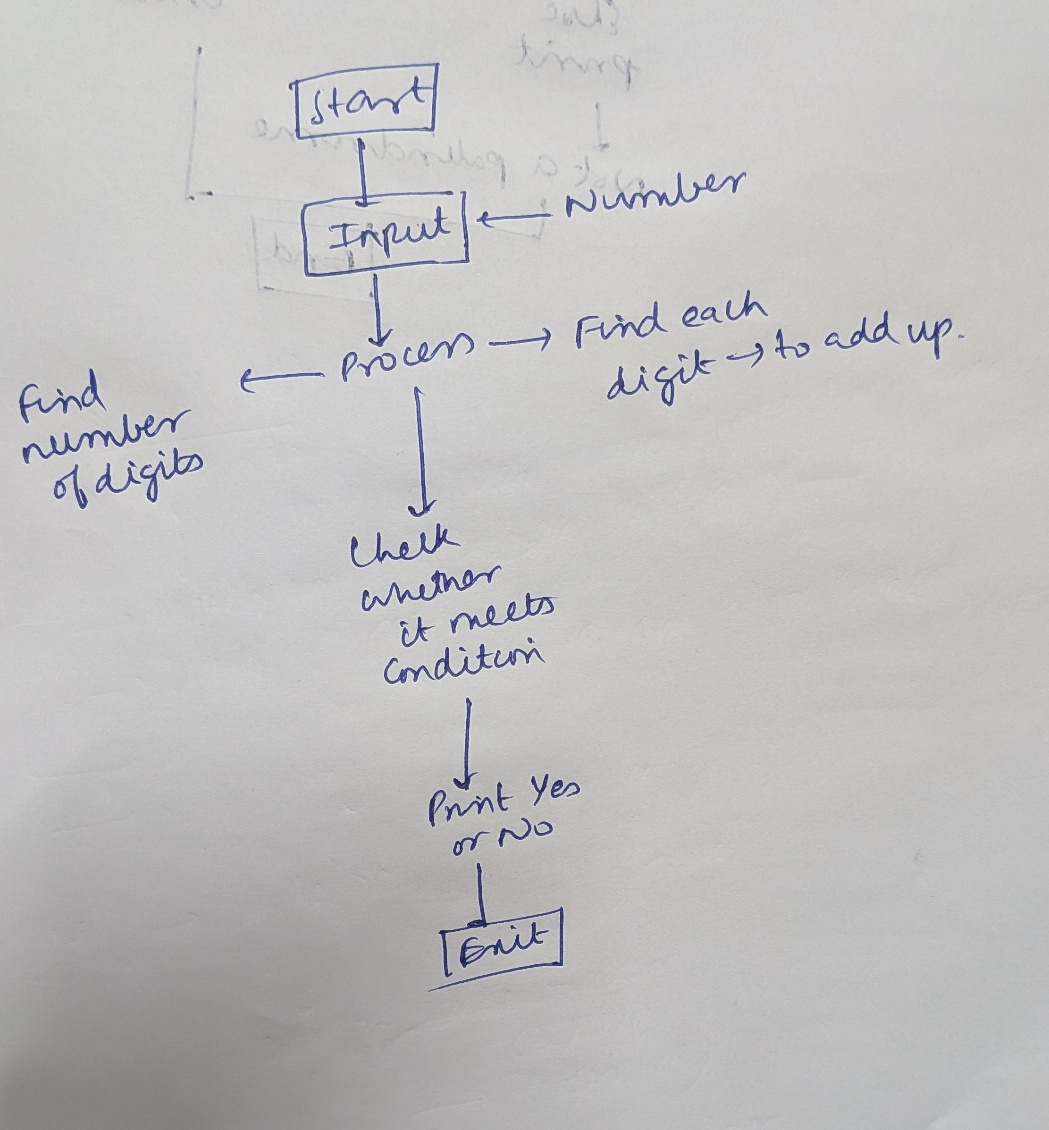 Start
Input
Number
Process
Find each
digit → to add up.
Find
number
of digits
Check
whether
it meets
Condition
Print Yes
or No
Exit